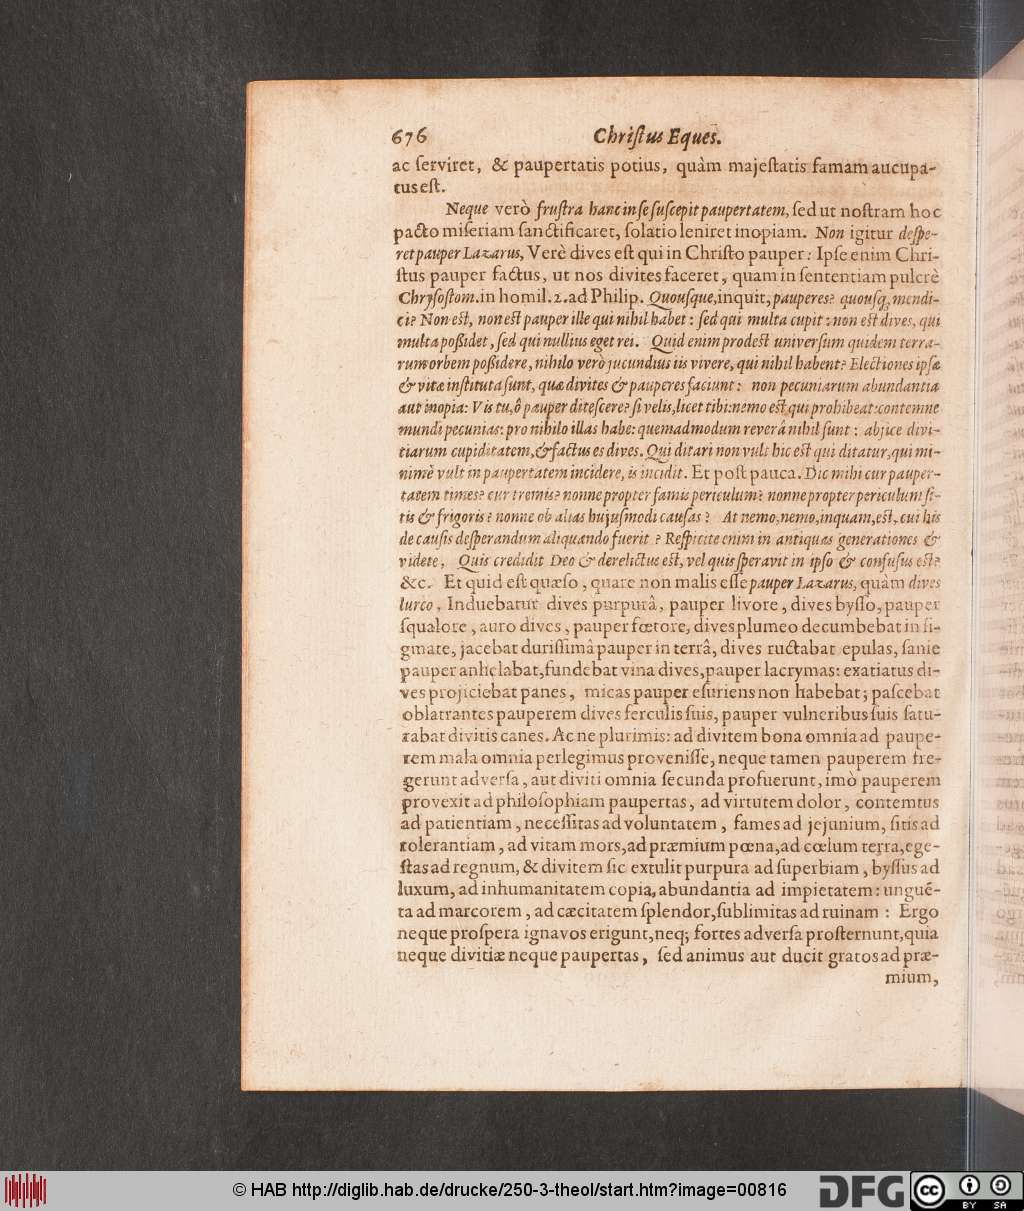 676 Chriſtus Eques.
ac ſerviret, & paupertatis potius, quàm majeſtatis famam aucupa-
tus eſt.
Neque verò fruſtra hanc in ſe ſuſcepit paupertatem, ſed ut noſtram hoc
pacto miſeriam ſanctificaret, ſolatio leniret inopiam. Non igitur deſpe-
ret pauper Lazarus, Verè dives eſt qui in Chriſto pauper: Ipſe enim Chri-
ſtus pauper factus, ut nos divites faceret, quam in ſententiam pulcrè
Chryſoſtom. in homil. 2. ad Philip. Quouſque, inquit, pauperes? quouſq; mendi-
ci? Non eſt, non eſt pauper ille qui nihil habet: ſed qui multa cupit: non eſt dives, qui
multa poßidet, ſed qui nullius eget rei. Quid enim prodeſt univerſum quidem terra-
rum orbem poßidere, nihilo verò jucundius iis vivere, qui nihil habent? Electiones ipſæ
& vitæ inſtituta ſunt, quæ divites & pauperes faciunt: non pecuniarum abundantia
aut inopia: Vis tu, ô pauper diteſcere? ſi velis, licet tibi: nemo eſt qui prohibeat: contemne
mundi pecunias: pro nihilo illas habe: quemadmodum reverâ nihil ſunt: abjice divi-
tiarum cupiditatem, & factus es dives. Qui ditari non vult hic eſt qui ditatur, qui mi-
nimè vult in paupertatem incidere, is incidit. Et poſt pauca. Dic mihi cur pauper-
tatem times? cur tremis? nonne propter famis periculum? nonne propter periculum ſi-
tis & frigoris? nonne ob alias hujuſmodi cauſas? At nemo, nemo, inquam, eſt, cui his
de cauſis deſperandum aliquando fuerit? Reſpicite enim in antiquas generationes &
videte, Quis credidit Deo & derelictus eſt, vel quis ſperavit in ipſo & confuſus eſt?
&c. Et quid eſt quæſo, quare non malis eſſe pauper Lazarus, quàm dives
lurco. Induebatur dives purpurâ, pauper livore, dives byſſo, pauper
ſqualore, auro dives, pauper fœtore, dives plumeo decumbebat in ſi-
gmate, jacebat duriſſimâ pauper in terrâ, dives ructabat epulas, ſanie
pauper anhelabat, fundebat vina dives, pauper lacrymas: exatiatus di-
ves projiciebat panes, micas pauper eſuriens non habebat; paſcebat
oblatrantes pauperem dives ferculis ſuis, pauper vulneribus ſuis ſatu-
rabat divitis canes. Ac ne plurimis: ad divitem bona omnia ad paupe-
rem mala omnia perlegimus proveniſſe, neque tamen pauperem fre-
gerunt adverſa, aut diviti omnia ſecunda profuerunt, imò pauperem
provexit ad philoſophiam paupertas, ad virtutem dolor, contemtus
ad patientiam, neceſſitas ad voluntatem, fames ad jejunium, ſitis ad
tolerantiam, ad vitam mors, ad præmium pœna, ad cœlum terra, ege-
ſtas ad regnum, & divitem ſic extulit purpura ad ſuperbiam, byſſus ad
luxum, ad inhumanitatem copia, abundantia ad impietatem: unguē-
ta ad marcorem, ad cæcitatem ſplendor, ſublimitas ad ruinam: Ergo
neque proſpera ignavos erigunt, neq; fortes adverſa proſternunt, quia
neque divitiæ neque paupertas, ſed animus aut ducit gratos ad præ-
mium,
© HAB http://diglib.hab.de/drucke/250-3-theol/start.htm?image=00816
DFG cc BY SA